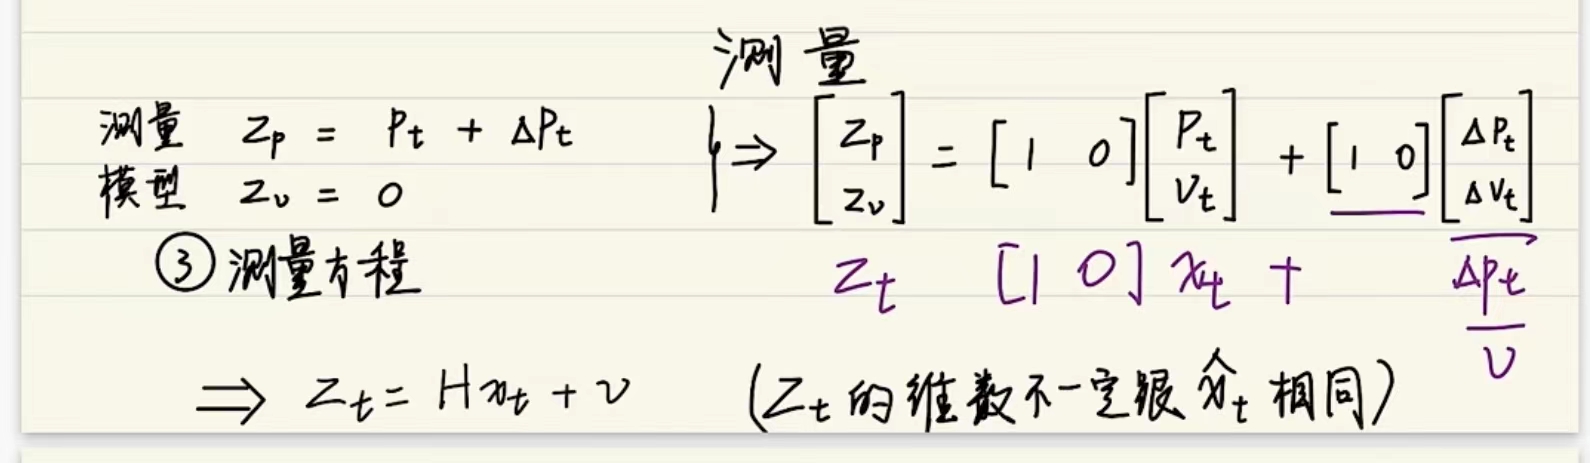 测量
测量 Zp = Pt + ΔPt
模型 Zv = 0
} ⇒ [Zp Zv] = [1 0][Pt Vt] + [1 0][ΔPt ΔVt]
③ 测量方程
Zt [1 0] xt + ΔPt
v
⇒ Zt = Hxt + v (Zt的维数不一定跟x̂t相同)